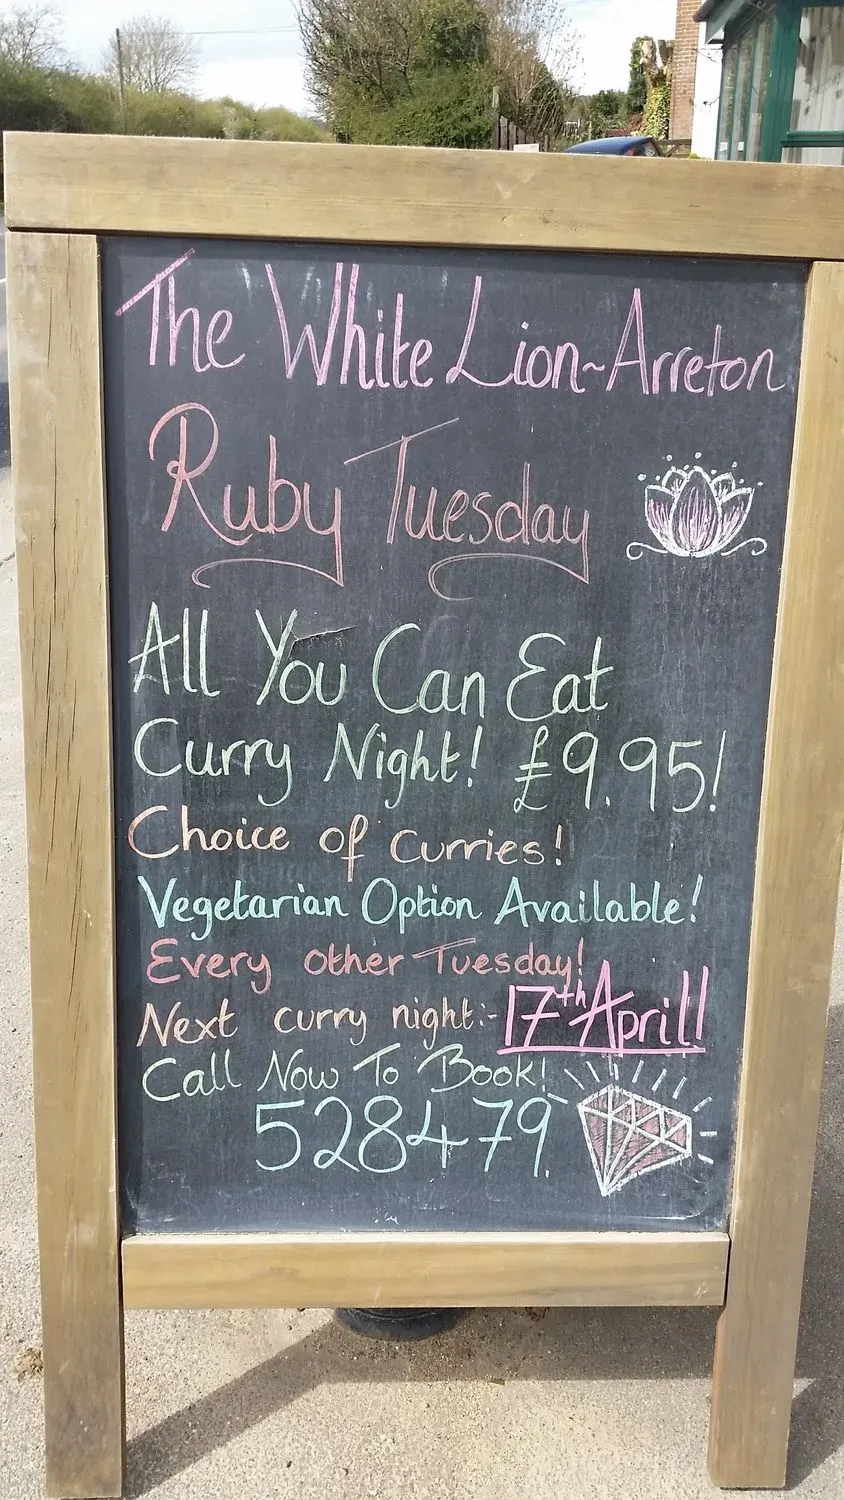 The White Lion~Arreton
Ruby Tuesday
All You Can Eat
Curry Night! £9.95!
Choice of Curries!
Vegetarian Option Available!
Every other Tuesday!
Next curry night:- 17th April!
Call Now To Book!
528479.